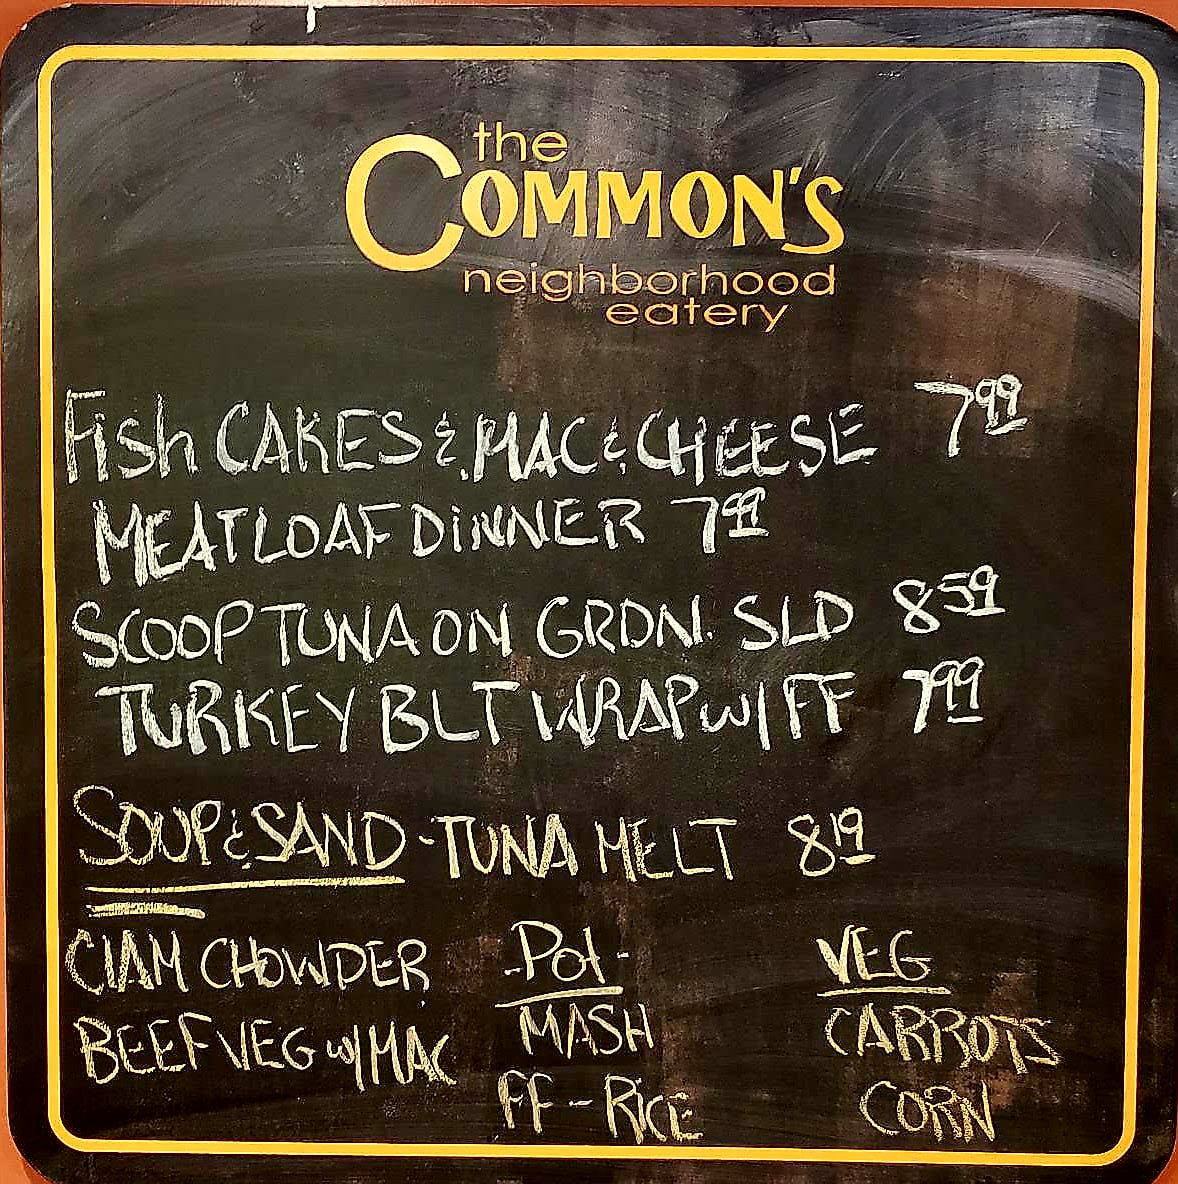 the
COMMON'S
neighborhood
eatery
Fish CAKES & MAC & CHEESE 7.99
MEATLOAF DINNER 7.99
SCOOP TUNA ON GRDN. SLD 8.59
TURKEY BLT WRAP w/ FF 7.99
SOUP & SAND - TUNA MELT 8.19
CLAM CHOWDER -Pot- VEG
BEEF VEG w/ MAC MASH CARROTS
FF - RICE CORN